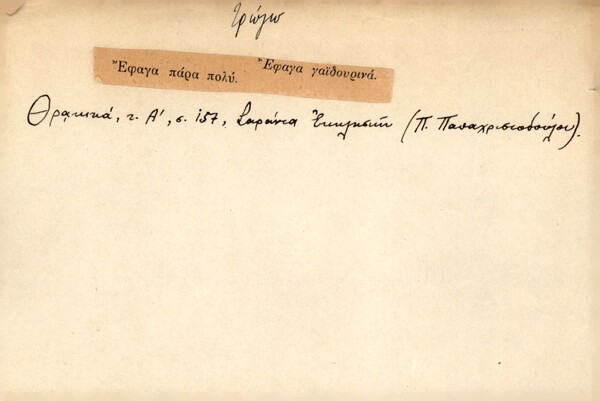 τρώγω
Ἔφαγα πάρα πολύ. Ἔφαγα γαϊδουρινά.
Θρακικά, τ. Α', σ. 157, Σαράντα Ἐκκλησιῶν (Π. Παπαχριστοδούλου).